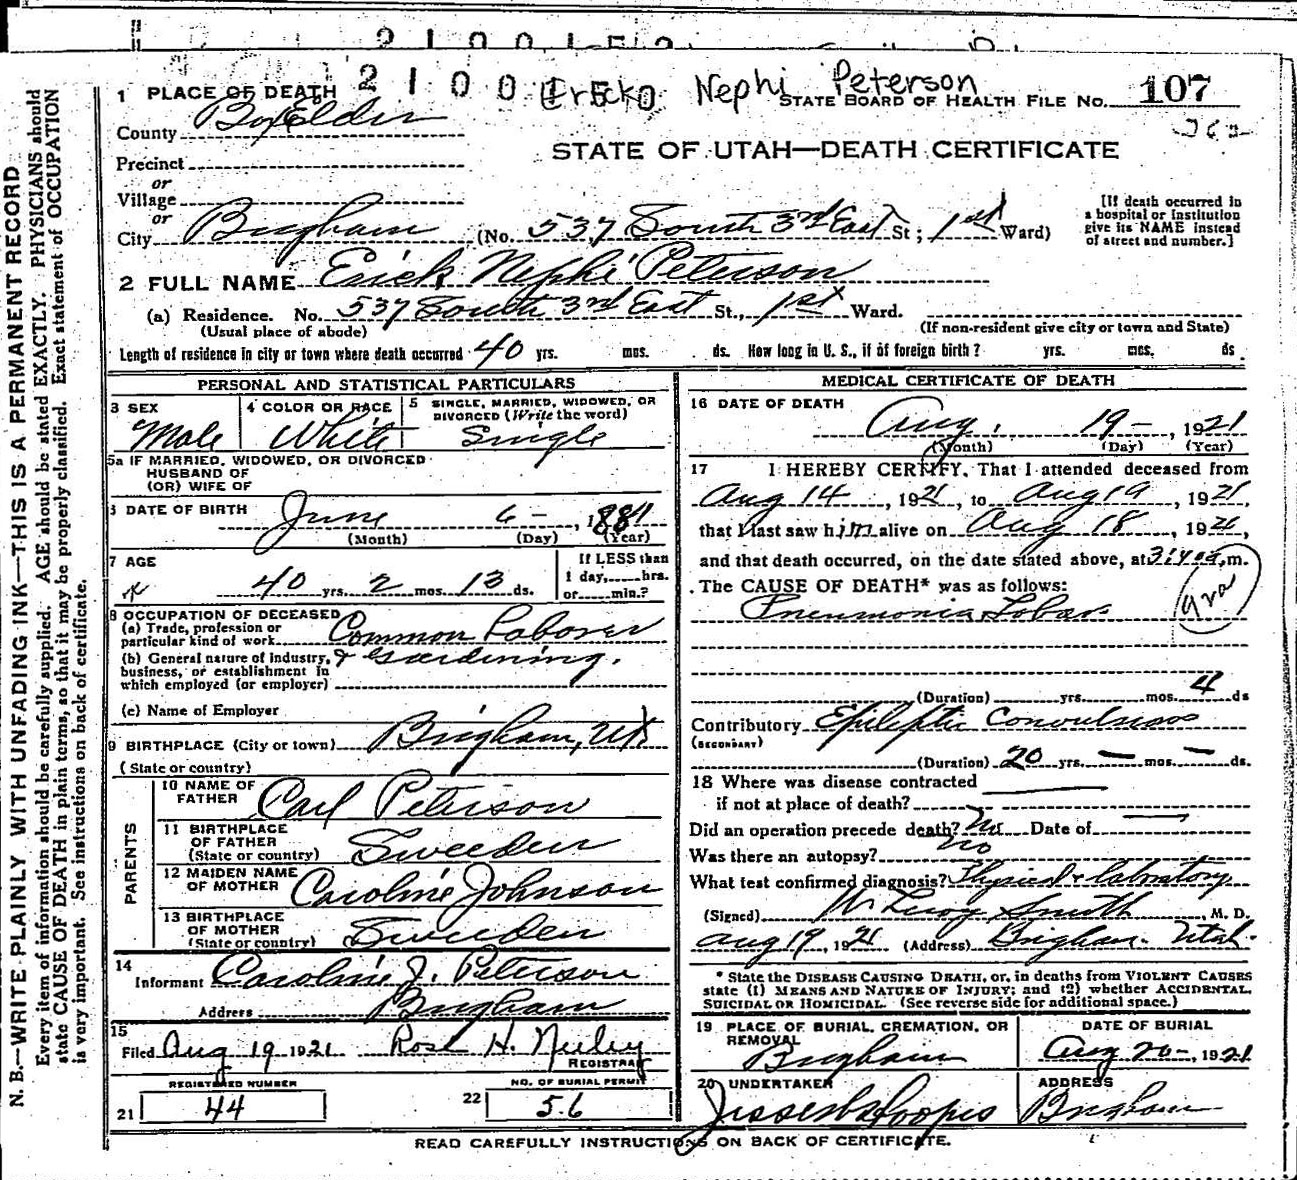 2 1 0 0 1 5 2
2 1 0 0
Nephi Peterson
1 PLACE OF DEATH
STATE BOARD OF HEALTH FILE NO. 107
County Box Elder
STATE OF UTAH—DEATH CERTIFICATE
Precinct
or
Village
or
City Brigham (No. 537 South 3rd East St; 1st Ward)
[If death occurred in
a hospital or institution
give its NAME instead
of street and number.]
2 FULL NAME Erick Nephi Peterson
(a) Residence. No. 537 South 3rd East St., 1st Ward.
(Usual place of abode)
(If non-resident give city or town and State)
Length of residence in city or town where death occurred 40 yrs. mos. ds. How long in U. S., if of foreign birth? yrs. mos. ds.
PERSONAL AND STATISTICAL PARTICULARS
3 SEX
Male
4 COLOR OR RACE
White
5 SINGLE, MARRIED, WIDOWED, OR
DIVORCED (Write the word)
Single
5a IF MARRIED, WIDOWED, OR DIVORCED
HUSBAND OF
(OR) WIFE OF
6 DATE OF BIRTH June 6 – , 1881
(Month) (Day) (Year)
7 AGE
40 yrs. 2 mos. 13 ds.
If LESS than
1 day,......hrs.
or......min.?
8 OCCUPATION OF DECEASED
(a) Trade, profession or
particular kind of work Common Laborer
(b) General nature of industry,
business, or establishment in
which employed (or employer) & Gardening.
(c) Name of Employer
9 BIRTHPLACE (City or town) Brigham, Ut.
(State or country)
PARENTS
10 NAME OF
FATHER Carl Peterson
11 BIRTHPLACE
OF FATHER
(State or country) Sweeden
12 MAIDEN NAME
OF MOTHER Caroline Johnson
13 BIRTHPLACE
OF MOTHER
(State or country) Sweeden
14
Informant Caroline J. Peterson
Address Brigham
15
Filed Aug 19 1921 Rose H. Neeley
REGISTRAR
REGISTERED NUMBER
21 44
NO. OF BURIAL PERMIT
22 56
MEDICAL CERTIFICATE OF DEATH
16 DATE OF DEATH
Aug. 19 – , 1921
(Month) (Day) (Year)
17 I HEREBY CERTIFY, That I attended deceased from
Aug 14, 1921, to Aug 19, 1921,
that I last saw him alive on Aug 18, 1921,
and that death occurred, on the date stated above, at m.
The CAUSE OF DEATH* was as follows:
Pneumonia Lobar
(Duration) yrs. mos. 4 ds
Contributory Epileptic Convulsions
(SECONDARY)
(Duration) 20 yrs. — mos. — ds.
18 Where was disease contracted
if not at place of death?
Did an operation precede death? No Date of —
Was there an autopsy? No
What test confirmed diagnosis? Physical & laboratory
(Signed) W Leroy Smith, M. D.
Aug 19, 1921 (Address) Brigham. Utah.
* State the DISEASE CAUSING DEATH, or, in deaths from VIOLENT CAUSES
state (1) MEANS AND NATURE OF INJURY; and (2) whether ACCIDENTAL,
SUICIDAL OR HOMICIDAL. (See reverse side for additional space.)
19 PLACE OF BURIAL, CREMATION, OR
REMOVAL
Brigham
DATE OF BURIAL
Aug 20 –, 1921
20 UNDERTAKER
ADDRESS
Brigham
READ CAREFULLY INSTRUCTIONS ON BACK OF CERTIFICATE.
N. B.—WRITE PLAINLY WITH UNFADING INK—THIS IS A PERMANENT RECORD
Every item of information should be carefully supplied. AGE should be stated EXACTLY. PHYSICIANS should
state CAUSE OF DEATH in plain terms, so that it may be properly classified. Exact statement of OCCUPATION
is very important. See instructions on back of certificate.